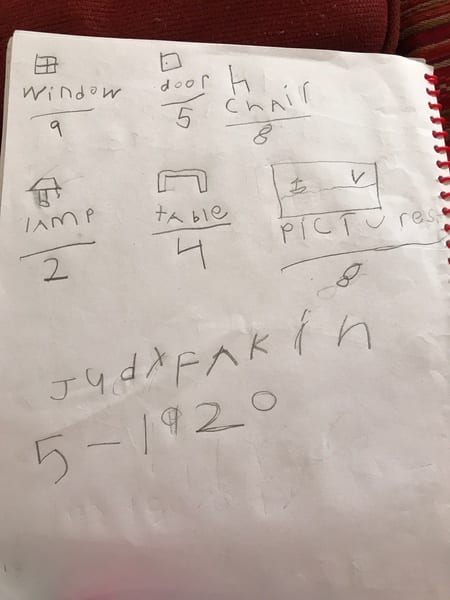 window door chair
9 5 8
lamp table pictures
2 4 8
JydXFAKin
5-1920